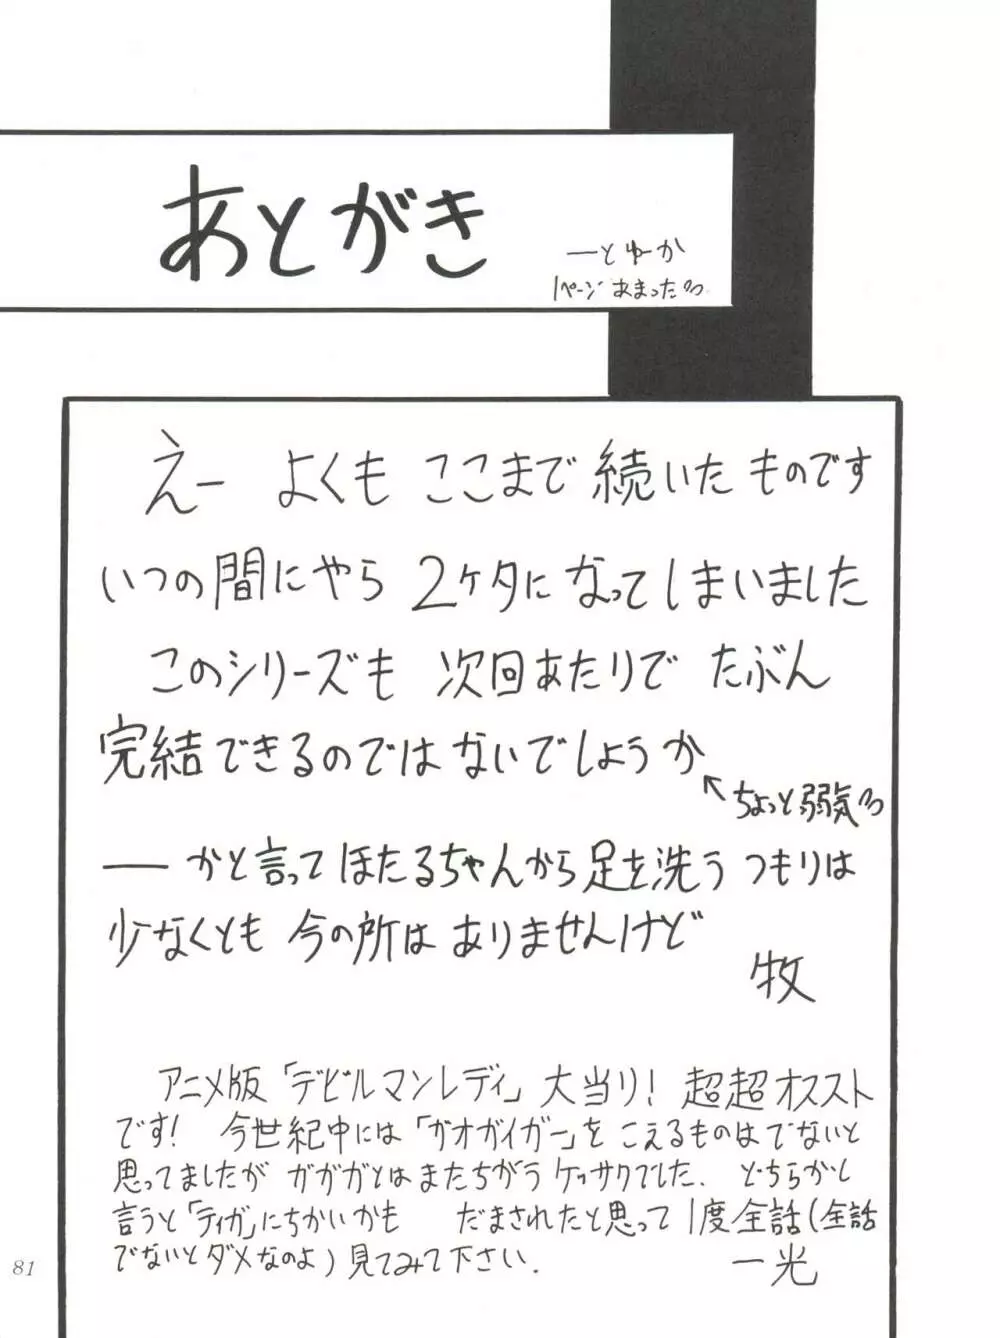 あとがき
ーとゆーか
1ページあまった
えー よくも ここまで 続いた ものです
いつの間にやら 2ケタに なってしまいました
このシリーズも 次回あたりで たぶん
完結できるのでは ないでしょうか
ちょっと弱気
── かと言って ほたるちゃんから 足を洗う つもりは
少なくとも 今の所は ありませんけど
牧
アニメ版「デビルマンレディ」大当り! 超超オススト
です! 今世紀中には「ガオガイガー」を こえるものは でないと
思ってましたが ガガガとは またちがう ケッサクでした. どちらかと
言うと「ティガ」にちかいかも だまされたと思って 1度全話(全話
でないと ダメなのよ) 見てみて下さい.
一光
81